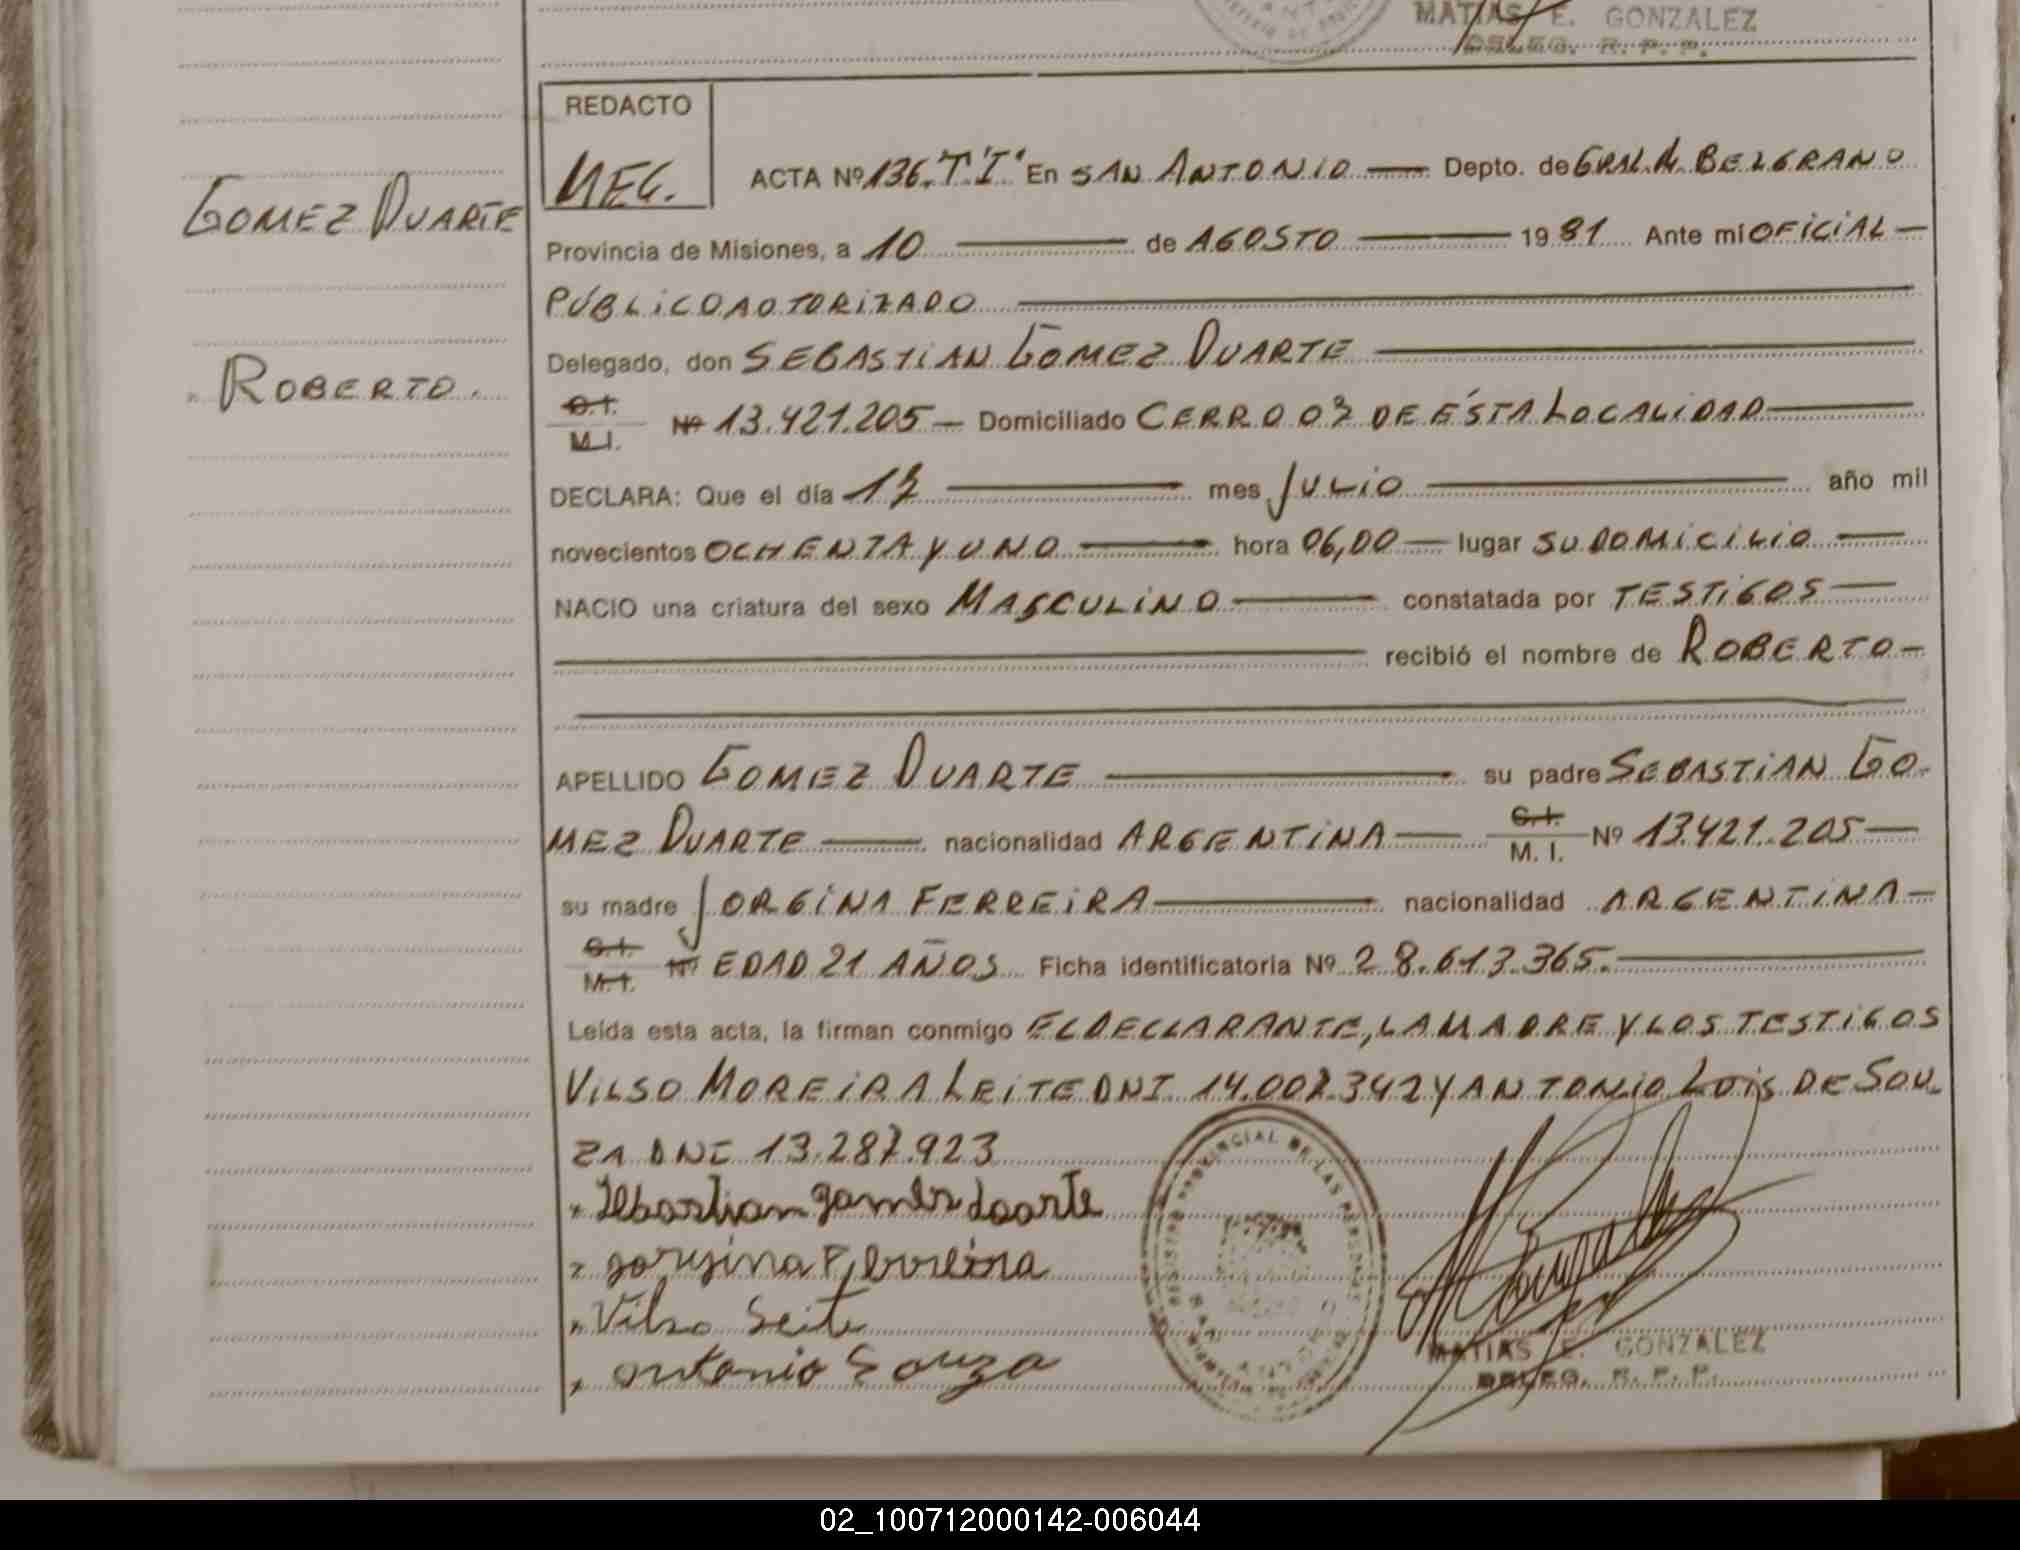 MATIAS E. GONZALEZ
DELEG. R. P. P.
REDACTO
MEG.
GOMEZ DUARTE
ROBERTO.
ACTA Nº 136 "T" "I" En SAN ANTONIO — Depto. de GRAL. M. BELGRANO
Provincia de Misiones, a 10 — de AGOSTO — 1981 Ante mí OFICIAL —
PÚBLICO AUTORIZADO —
Delegado, don SEBASTIAN GOMEZ DUARTE —
C.I. / M.I. Nº 13.421.205 — Domiciliado CERRO 07 DE ÉSTA LOCALIDAD —
DECLARA: Que el día 17 — mes JULIO — año mil
novecientos OCHENTA Y UNO — hora 06,00 — lugar SU DOMICILIO —
NACIO una criatura del sexo MASCULINO — constatada por TESTIGOS —
— recibió el nombre de ROBERTO —
APELLIDO GOMEZ DUARTE — su padre SEBASTIAN GO-
MEZ DUARTE — nacionalidad ARGENTINA — C.I. / M. I. Nº 13.421.205 —
su madre JORGINA FERREIRA — nacionalidad ARGENTINA —
C.I. / M.I. Nº EDAD 21 AÑOS Ficha identificatoria Nº 28.613.365. —
Leída esta acta, la firman conmigo EL DECLARANTE, LA MADRE Y LOS TESTIGOS
VILSO MOREIRA LEITE DNI 14.007.342 Y ANTONIO LUIS DE SOU-
ZA DNI 13.287.923
Sebastian gomes doarte
gorgina Ferreira
Vilso Leite
antonio Souza
REGISTRO PROVINCIAL DE LAS PERSONAS
SAN ANTONIO
MATIAS E. GONZALEZ
DELEG. R. P. P.
02_100712000142-006044